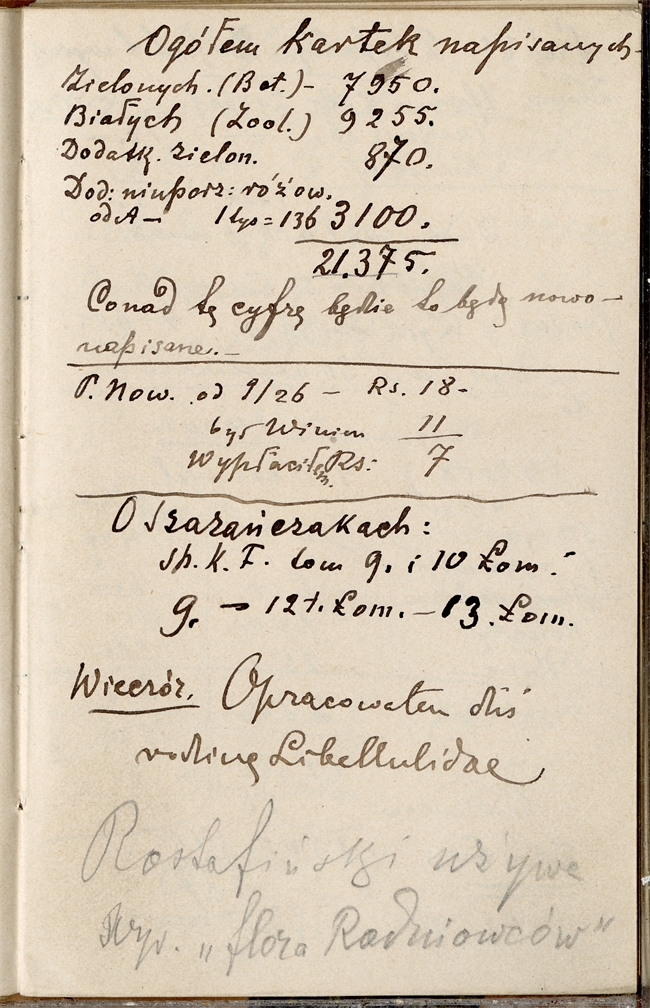 Ogółem kartek napisanych
Zielonych. (Bot.) – 7950.
Białych (Zool.) 9255.
Dodatk. zielon. 870.
Dod: niuporz: różow.
od A – 1 tys = 136 3100.
21.375.
Ponad tę cyfrę będzie to będą nowo –
napisane. –
P. Now. od 9/26 – Rs. 18 –
był Winien 11
Wypłaciłem Rs: 7
O Szarańczakach:
Sp. K. F. tom 9. i 10 Łom.
9. – 12 t. Łom. – 13. Łom.
Wieczór. Opracowałem dziś
rodzinę Libellulidae
Rostafiński używa
Wyr. „flora Radniowców"